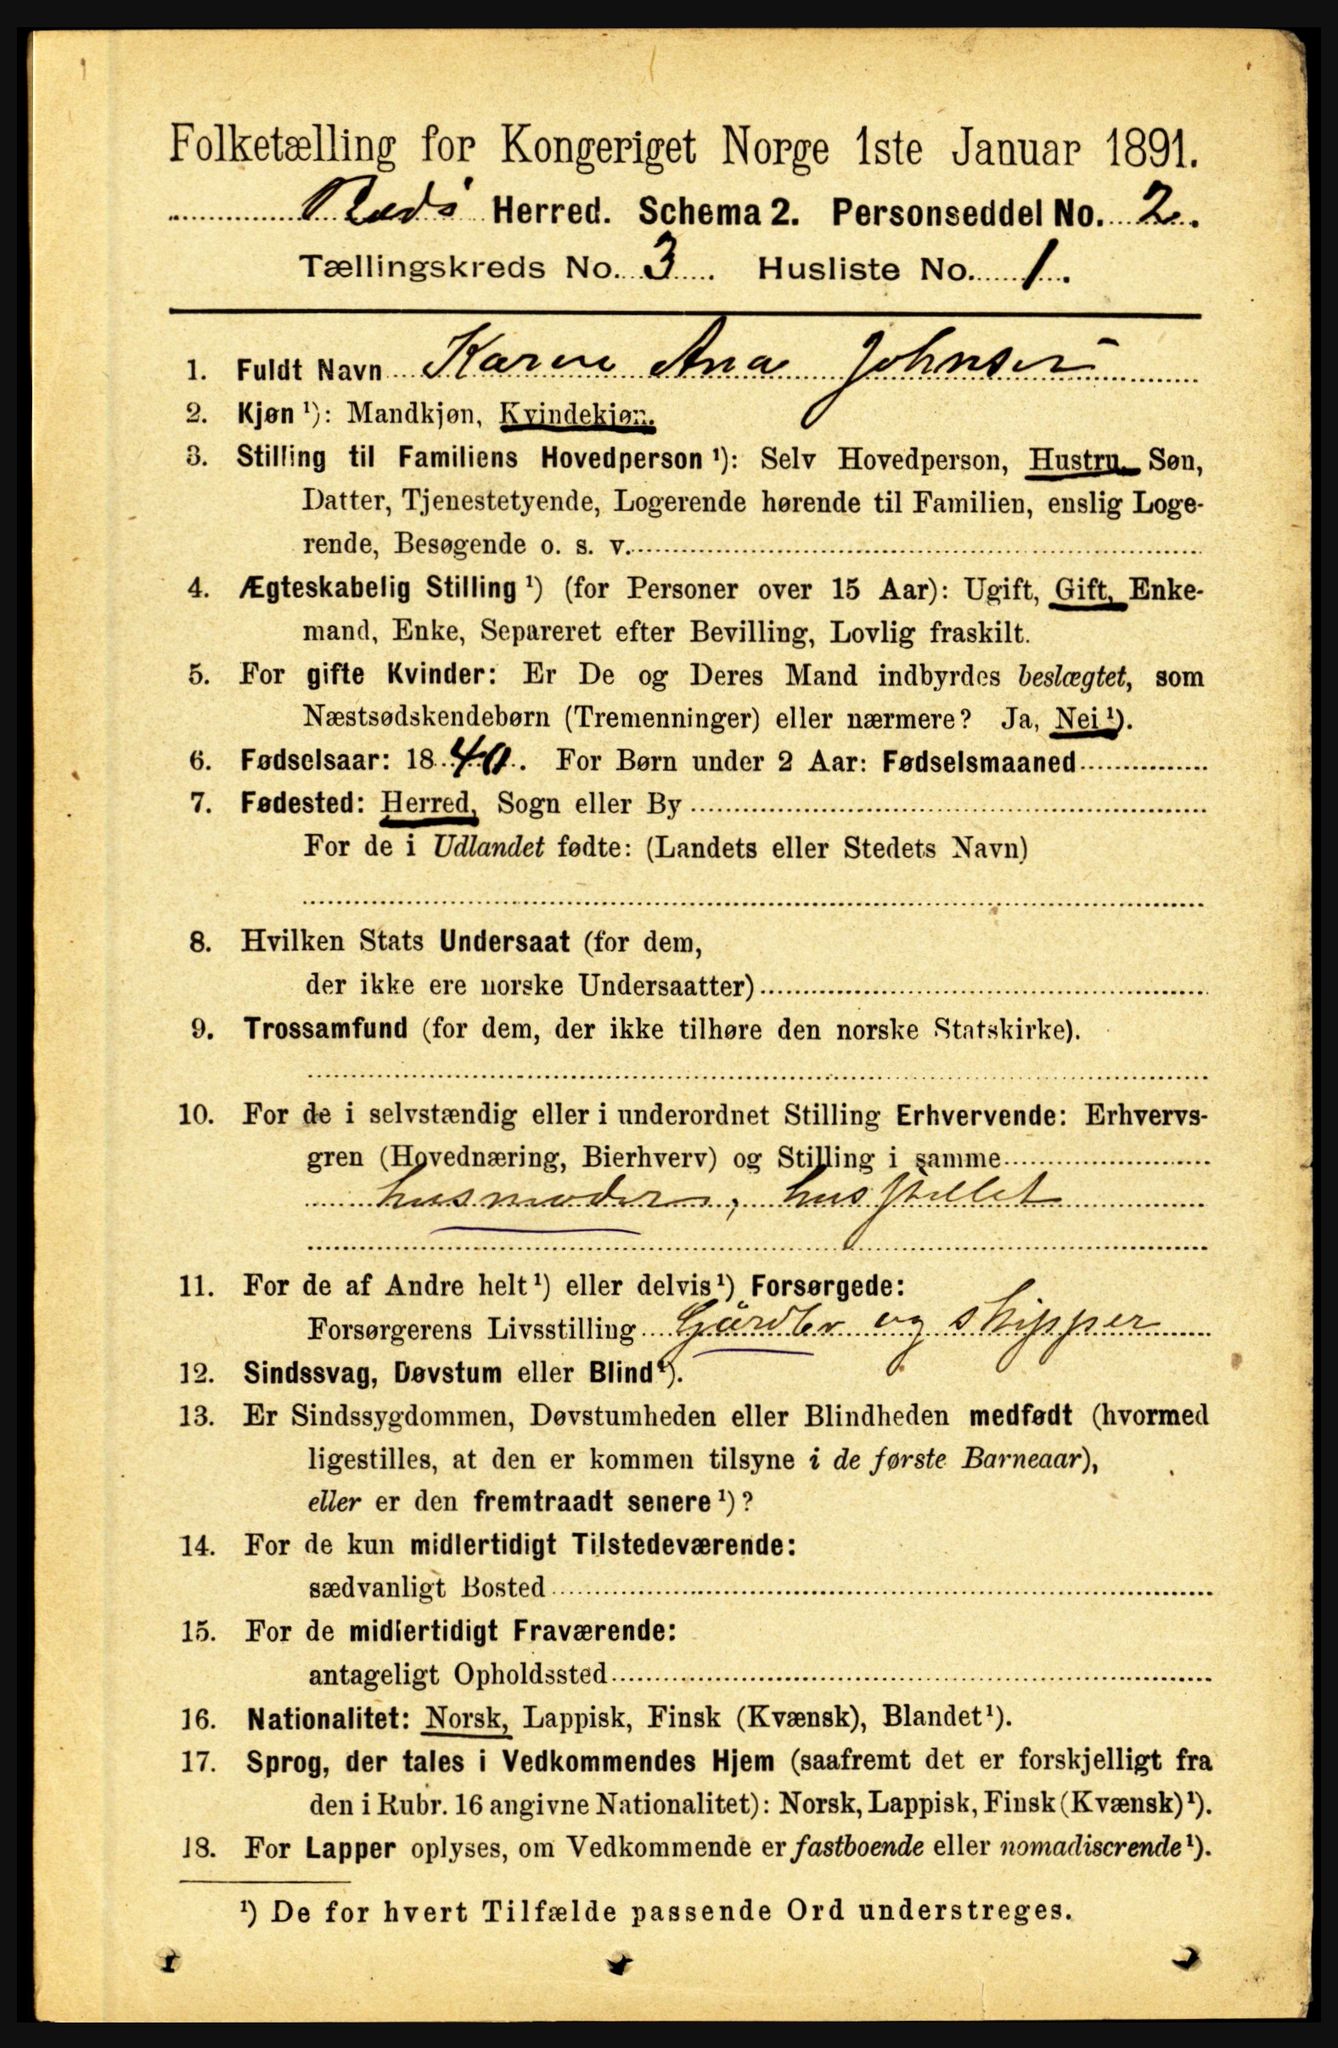 Folketælling for Kongeriget Norge 1ste Januar 1891.
Rødø Herred. Schema 2. Personseddel No. 2.
Tællingskreds No. 3. Husliste No. 1.
1. Fuldt Navn Karen Ana Johnsen
2. Kjøn ¹): Mandkjøn, Kvindekjøn.
3. Stilling til Familiens Hovedperson ¹): Selv Hovedperson, Hustru, Søn,
Datter, Tjenestetyende, Logerende hørende til Familien, enslig Loge-
rende, Besøgende o. s. v.
4. Ægteskabelig Stilling ¹) (for Personer over 15 Aar): Ugift, Gift, Enke-
mand, Enke, Separeret efter Bevilling, Lovlig fraskilt.
5. For gifte Kvinder: Er De og Deres Mand indbyrdes beslægtet, som
Næstsødskendebørn (Tremenninger) eller nærmere? Ja, Nei ¹).
6. Fødselsaar: 1840. For Børn under 2 Aar: Fødselsmaaned
7. Fødested: Herred, Sogn eller By
For de i Udlandet fødte: (Landets eller Stedets Navn)
8. Hvilken Stats Undersaat (for dem,
der ikke ere norske Undersaatter)
9. Trossamfund (for dem, der ikke tilhøre den norske Statskirke).
10. For de i selvstændig eller i underordnet Stilling Erhvervende: Erhvervs-
gren (Hovednæring, Bierhverv) og Stilling i samme
husmoder, husstellet
11. For de af Andre helt ¹) eller delvis ¹) Forsørgede:
Forsørgerens Livsstilling Gårdbr og skipper
12. Sindssvag, Døvstum eller Blind ¹).
13. Er Sindssygdommen, Døvstumheden eller Blindheden medfødt (hvormed
ligestilles, at den er kommen tilsyne i de første Barneaar),
eller er den fremtraadt senere ¹)?
14. For de kun midlertidigt Tilstedeværende:
sædvanligt Bosted
15. For de midlertidigt Fraværende:
antageligt Opholdssted
16. Nationalitet: Norsk, Lappisk, Finsk (Kvænsk), Blandet ¹).
17. Sprog, der tales i Vedkommendes Hjem (saafremt det er forskjelligt fra
den i Rubr. 16 angivne Nationalitet): Norsk, Lappisk, Finsk (Kvænsk) ¹).
18. For Lapper oplyses, om Vedkommende er fastboende eller nomadiserende ¹).
¹) De for hvert Tilfælde passende Ord understreges.